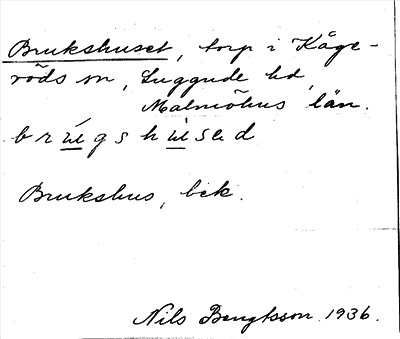 Brukshuset, torp i Kåge-
röds sn, Luggude hd,
Malmöhus län.
Brukshus, bek.
Nils Bengtsson 1936.